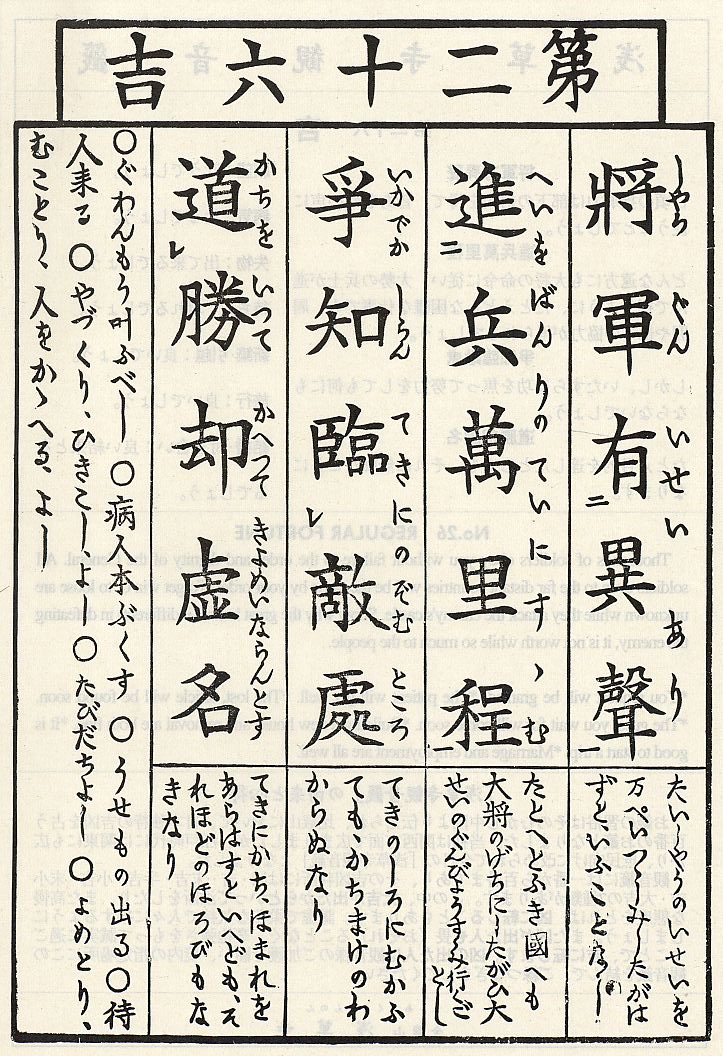 第二十六吉
將軍有二異聲一
しやうぐんいせいあり
たいしやうのいせいを
万ぺいつゝしみしたがは
ずといふことなし
進二兵萬里程一
へいをばんりのていにすゝむ
たとへとふき國へも
大將のげちにしたがひ大
せいのぐんびようすゝみ行ごとし
爭知臨レ敵處
いかでかしらんてきにのぞむところ
てきのところにむかふ
てもかちまけのわ
からぬなり
道レ勝却虚名
かちをいつてかへつてきよめいならんとす
てきにかちほまれを
あらはすといへども、そ
れほどのほろびもな
きなり
○ぐわんもう叶ふべし ○病人本ぶくす ○うせもの出る○待
人来る ○やづくり、ひきこしよし ○たびだちよし ○よめとり、
むことり、人をかゝへる、よし